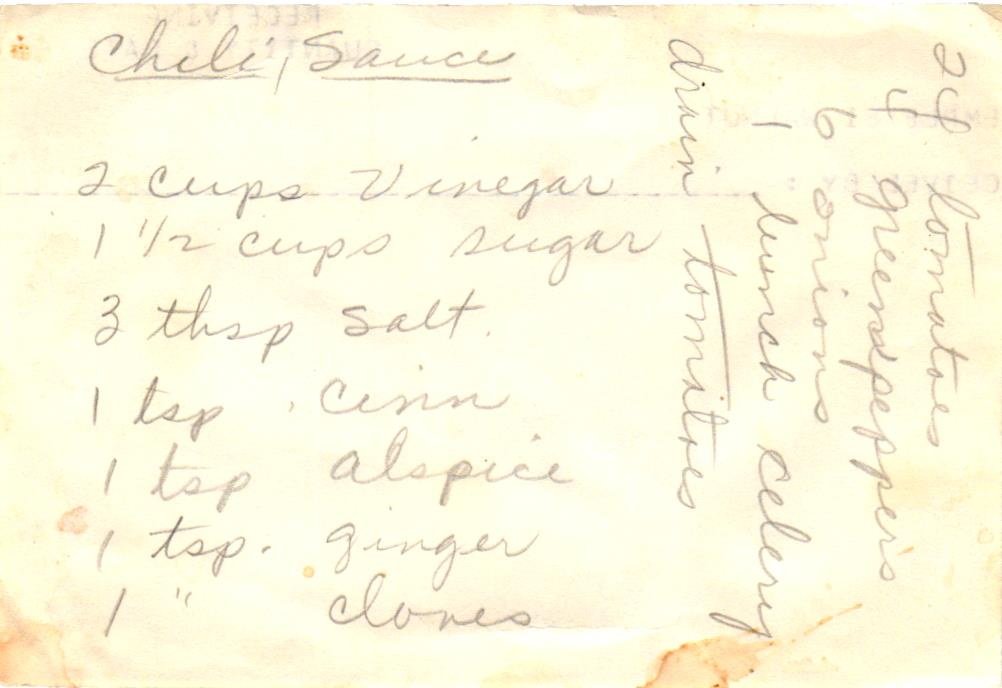 Chili Sauce
2 cups Vinegar
1 1/2 cups sugar
3 tbsp salt.
1 tsp. cinn
1 tsp alspice
1 tsp. ginger
1 " cloves
24 tomatoes
4 greenpeppers
6 onions
1 bunch celery
drain tomatoes